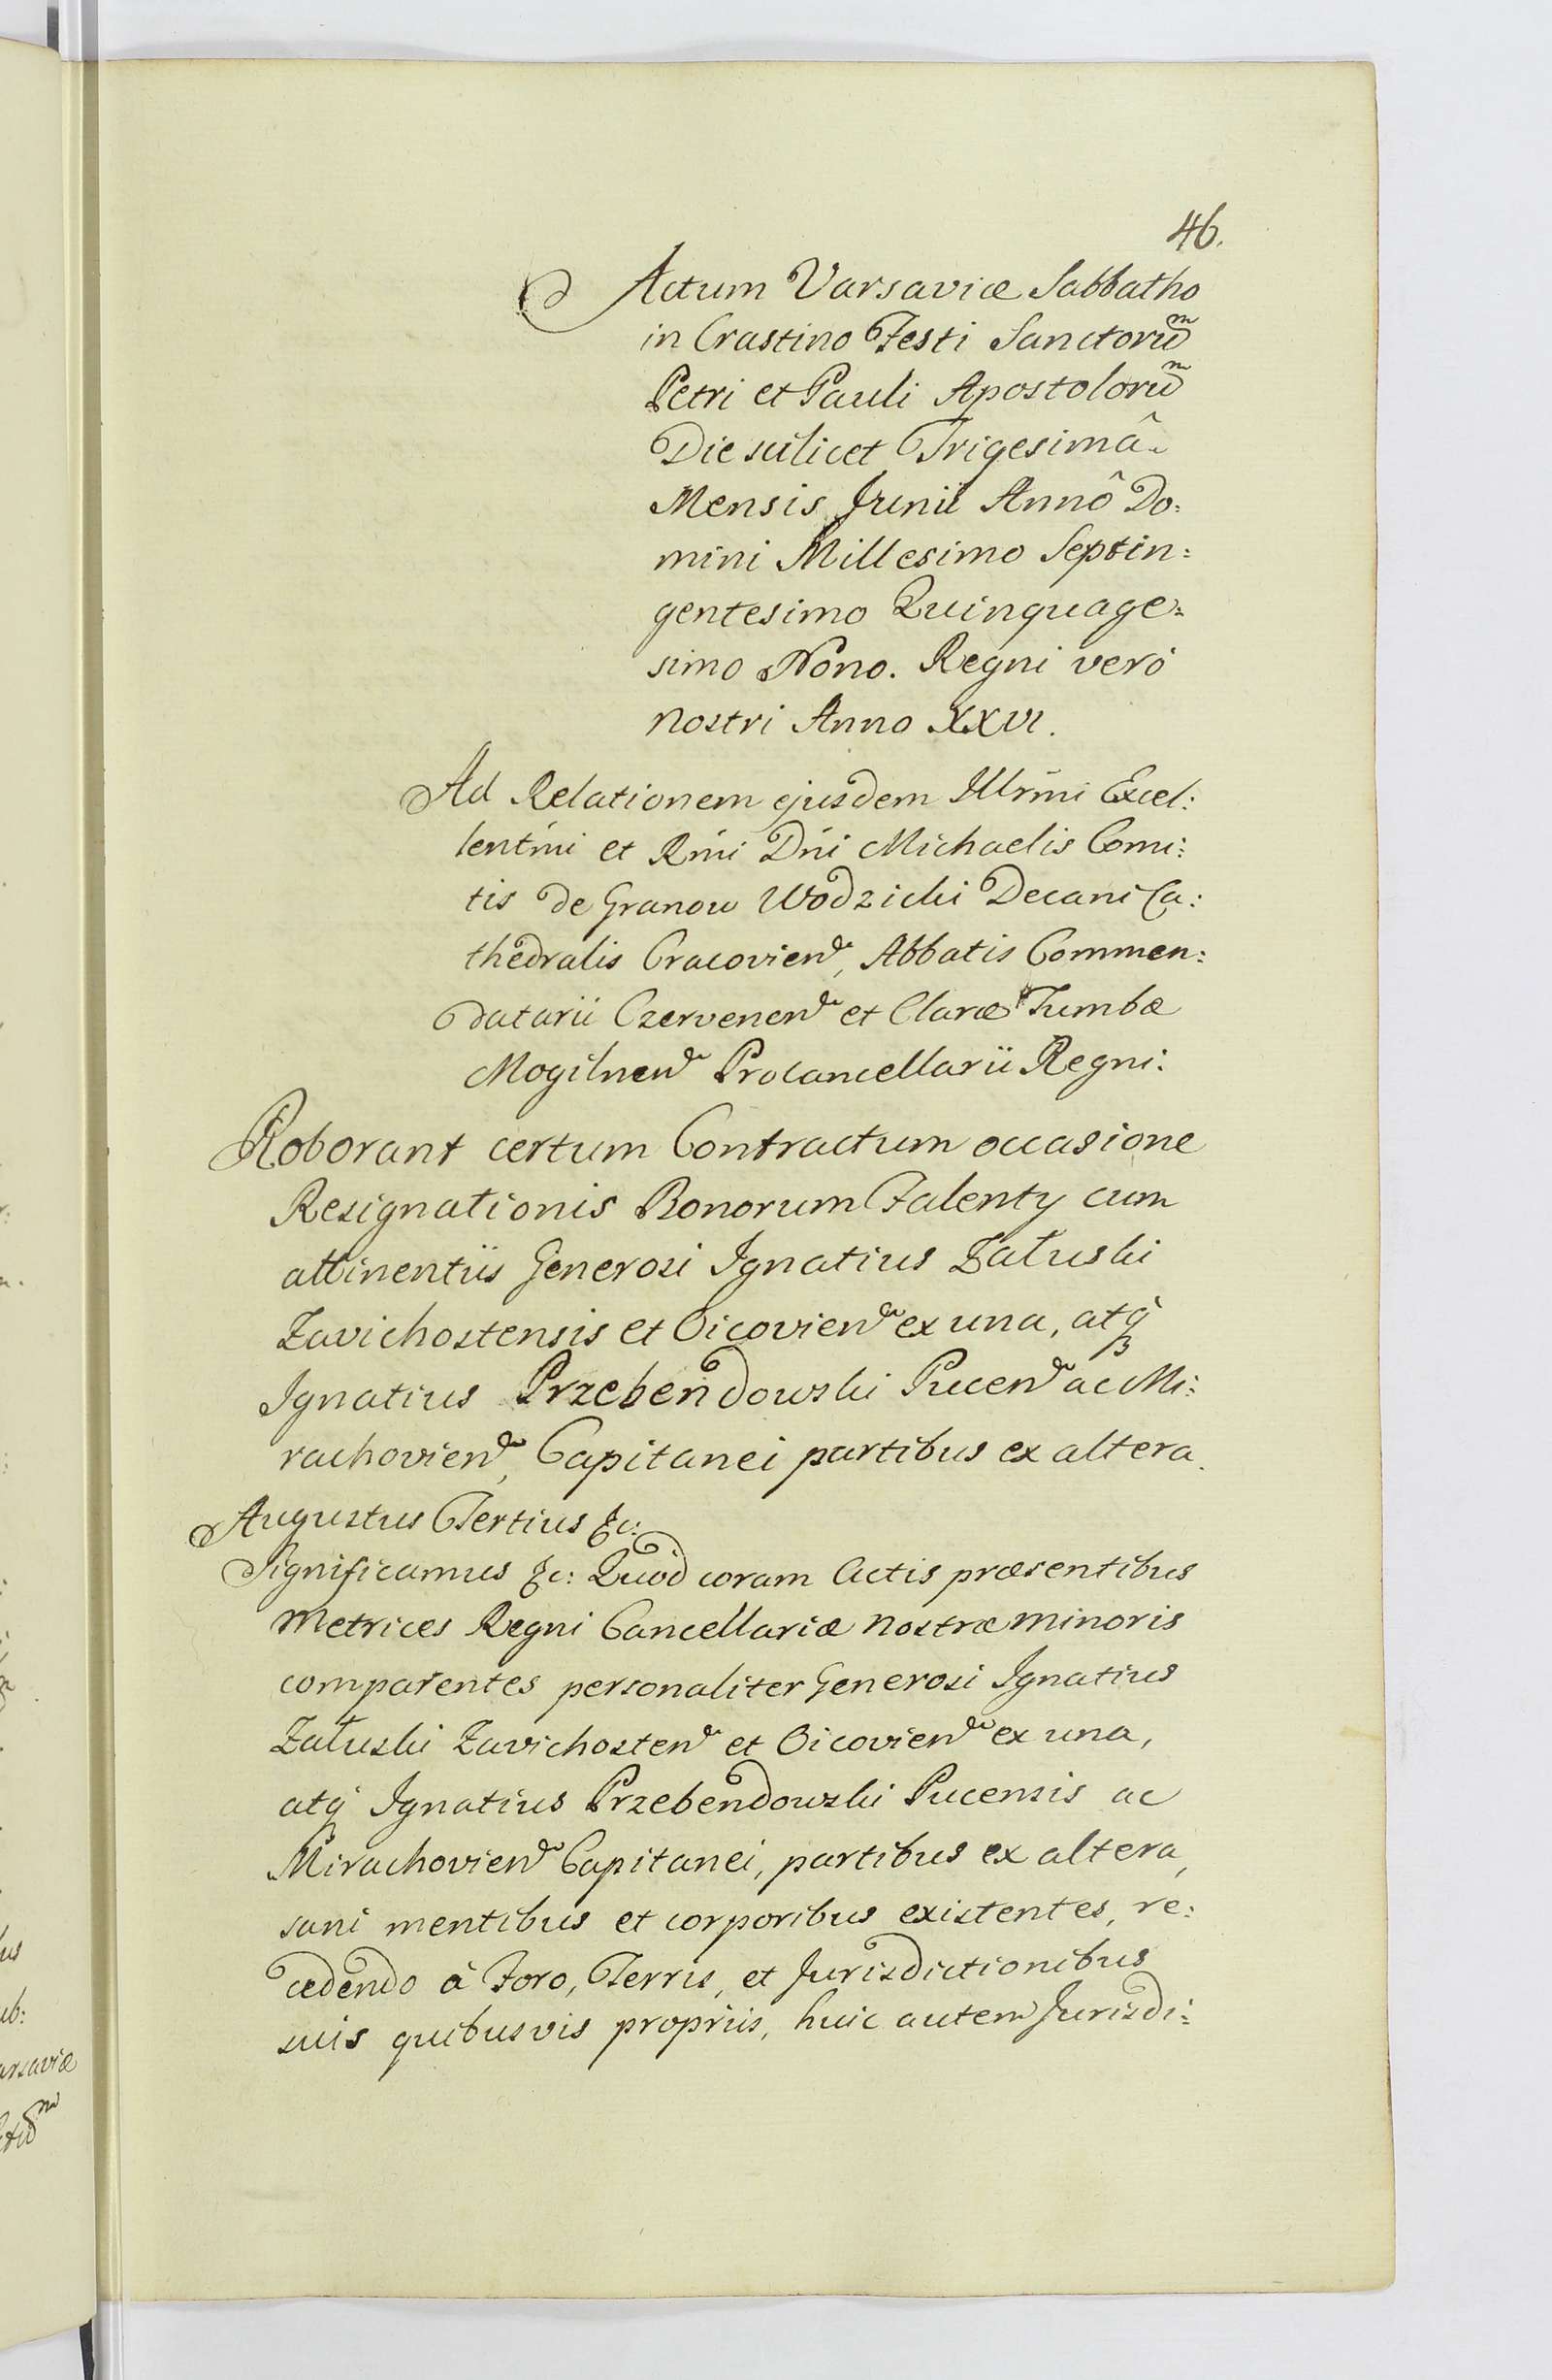 46.
Actum Varsaviæ Sabbatho
in Crastino Festi Sanctorũm
Petri et Pauli Apostolorũm
Die scilicet Trigesimâ
Mensis Junii Annô Do:
mini Millesimo Septin:
gentesimo Quinquage:
simo Nono. Regni verò
nostri Anno XXVI.
Ad Relationem ejusdem Illrmi Excel:
lentmi et Rmi Dni Michaelis Comi:
tis de Granow Wodzicki Decani Ca:
thedralis Cracovien, Abbatis Commen:
datarii Czervenen et Claræ Tumbæ
Mogilnen Procancellarii Regni:
Roborant certum Contractum occasione
Resignationis Bonorum Falenty cum
attinentiis Generosi Ignatius Załuski
Zavichostensis et Oicovien ex una, atq
Ignatius Przebendowski Pucen ac Mi:
rachovien, Capitanei partibus ex altera.
Augustus Tertius &c:
Significamus &c: Quod coram Actis præsentibus
Metrices Regni Cancellariæ nostræ minoris
comparentes personaliter Generosi Ignatius
Załuski Zavichosten et Oicovien ex una,
atq Ignatius Przebendowski Pucensis ac
Mirachovien Capitanei, partibus ex altera,
sani mentibus et corporibus existentes, re:
cedendo à Foro, Terris, et Jurisdictionibus
suis quibusvis propriis, huic autem Jurisdi:
us
ub:
arsaviæ